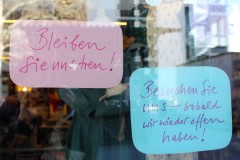 Bleiben
Sie uns treu!
Besuchen Sie
uns – sobald
wir wieder offen
haben!